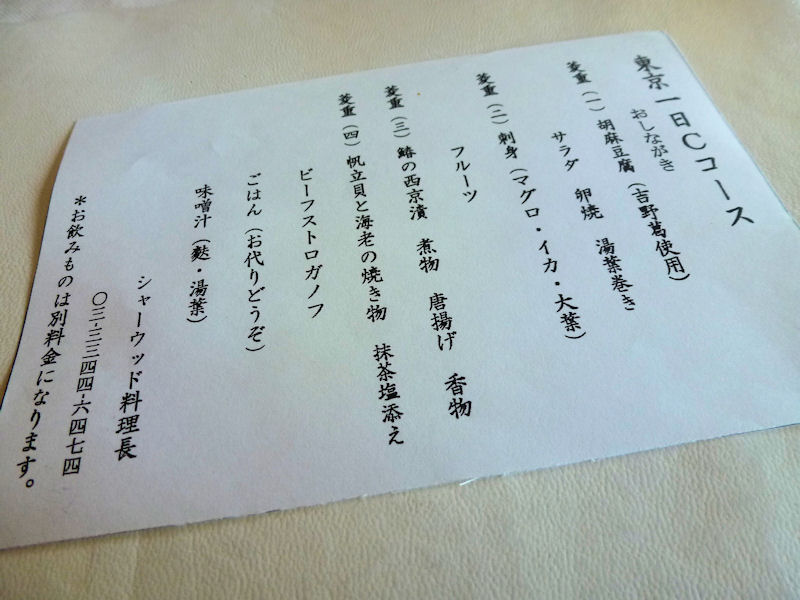 東京一日Cコース
おしながき
菱重（一）胡麻豆腐（吉野葛使用）
サラダ　卵焼　湯葉巻き
菱重（二）刺身（マグロ・イカ・大葉）
フルーツ
菱重（三）鰆の西京漬　煮物　唐揚げ　香物
菱重（四）帆立貝と海老の焼き物　抹茶塩添え
ビーフストロガノフ
ごはん（お代りどうぞ）
味噌汁（麩・湯葉）
シャーウッド料理長
〇三-三三四四-六四七四
＊お飲みものは別料金になります。